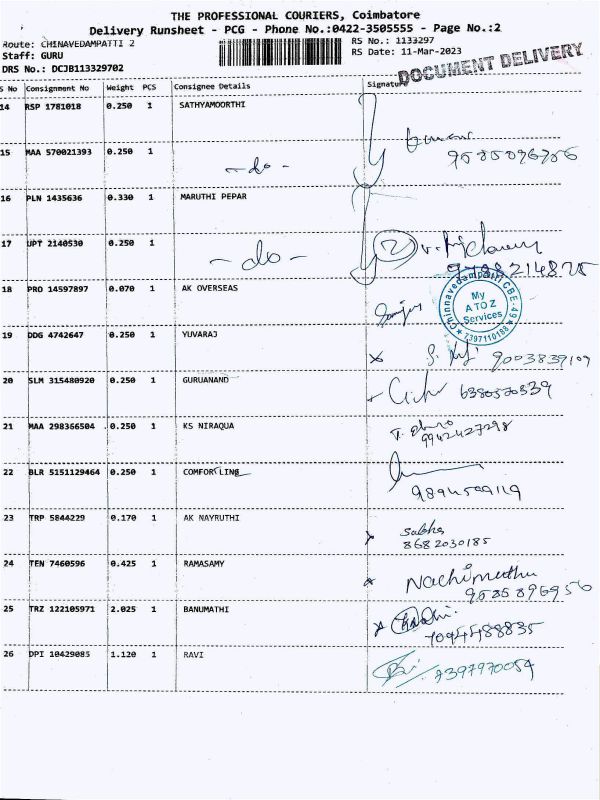 THE PROFESSIONAL COURIERS, Coimbatore
Delivery Runsheet - PCG - Phone No.:0422-3505555 - Page No.:2
Route: CHINAVEDAMPATTI 2
RS No.: 1133297
Staff: GURU
RS Date: 11-Mar-2023
DRS No.: DCJB113329702
DOCUMENT DELIVERY
S No Consignment No Weight PCS Consignee Details Signature
14 RSP 1781018 0.250 1 SATHYAMOORTHI
15 MAA 570021393 0.250 1 -do-
16 PLN 1435636 0.330 1 MARUTHI PEPAR
17 UPT 2140530 0.250 1 -do- 2
18 PRO 14597897 0.070 1 AK OVERSEAS
Chinnavedampatti CBE-49
My
A TO Z
Services
7397110188
19 DDG 4742647 0.250 1 YUVARAJ 9003839109
20 SLM 315480920 0.250 1 GURUANAND 6380570339
21 MAA 298366504 0.250 1 KS NIRAQUA 9942427298
22 BLR 5151129464 0.250 1 COMFORT LINE 9894509119
23 TRP 5844229 0.170 1 AK NAYRUTHI
8682030185
24 TEN 7460596 0.425 1 RAMASAMY Nachimuthu
9585896956
25 TRZ 122105971 2.025 1 BANUMATHI
7094488835
26 DPI 10429085 1.120 1 RAVI 7397970054